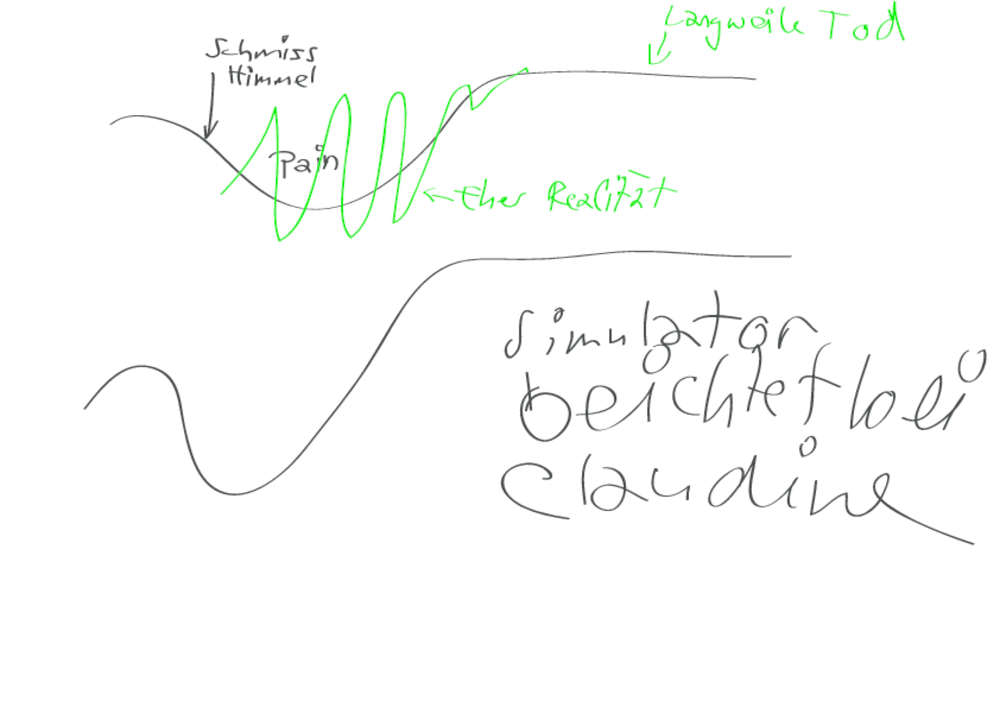 Langweile Tod
Schmiss
Himmel
Pain
Eher Realität
Simulator
beichtet bei
Claudine